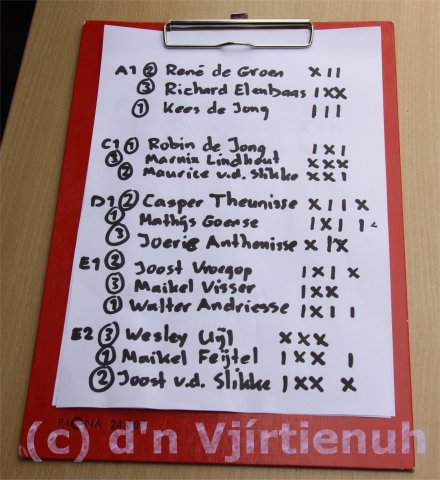 A1 ② René de Groen x 1 1
③ Richard Elenbaas 1 x x
① Kees de Jong 1 1 1
C1 ① Robin de Jong 1 x 1
③ Marnix Lindhout x x x
② Maurice v.d. Slikke x x 1
D1 ② Casper Theunisse x 1 1 x
① Mathijs Goense 1 x 1 1
③ Joerie Anthonisse x 1 x
E1 ② Joost Vroegop 1 x 1 x
③ Maikel Visser 1 x x
① Walter Andriesse 1 x 1 1
E2 ③ Wesley Uijl x x x
① Maikel Feijtel 1 x x 1
② Joost v.d. Slikke 1 x x x
PAGNA
(c) d'n Vjírtienuh